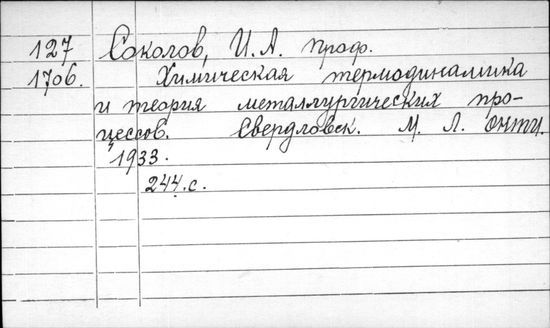 127 Соколов, И. А. проф.
1706. Химическая термодинамика
и теория металлургических про-
цессов. Свердловск. М. Л. ОНТИ.
1933.
244.с.